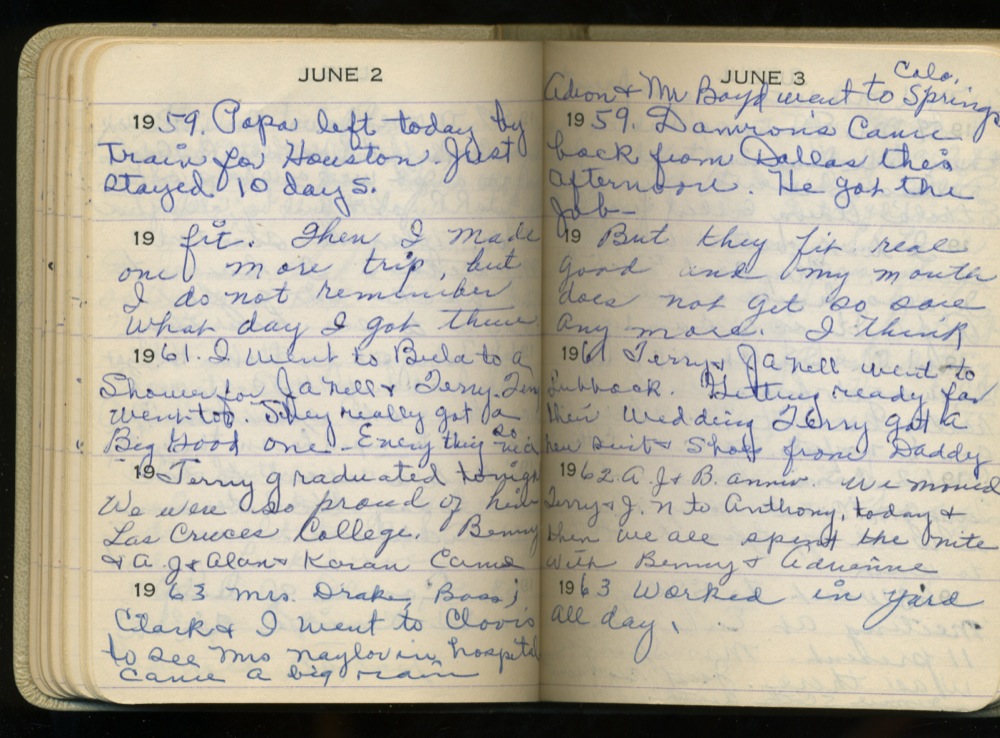 JUNE 2
1959. Papa left today by
train for Houston. Just
stayed 10 days.
19 fit. Then I made
one more trip, but
I do not remember
what day I got them
1961. I went to Bula to a
Shower for Ja Nell & Terry.
went to. They really got a
Big Good one - Every thing so nice
19 Terry graduated tonight
We were so proud of him
Las Cruces College. Benny
& A. J. & Alan & Karan Came
1963 Mrs. Drake, Bass,
Clark & I went to Clovis
to see Mrs Naylor in hospital
Came a big rain
JUNE 3
Colo.
& Mr Boyd went to Springs
1959. Damron's Came
back from Dallas this
afternoon. He got the
Job-
19 But they fit real
good and my mouth
does not get so sore
any more. I think
1961 Terry & Ja Nell went to
Lubbock. Getting ready for
their Wedding Terry got a
new suit & Shoes from Daddy
1962. A. J. & B. anniv. We moved
Terry & J. N to Anthony, today &
then we all spent the nite
with Benny & Adrienne
1963 Worked in yard
all day.